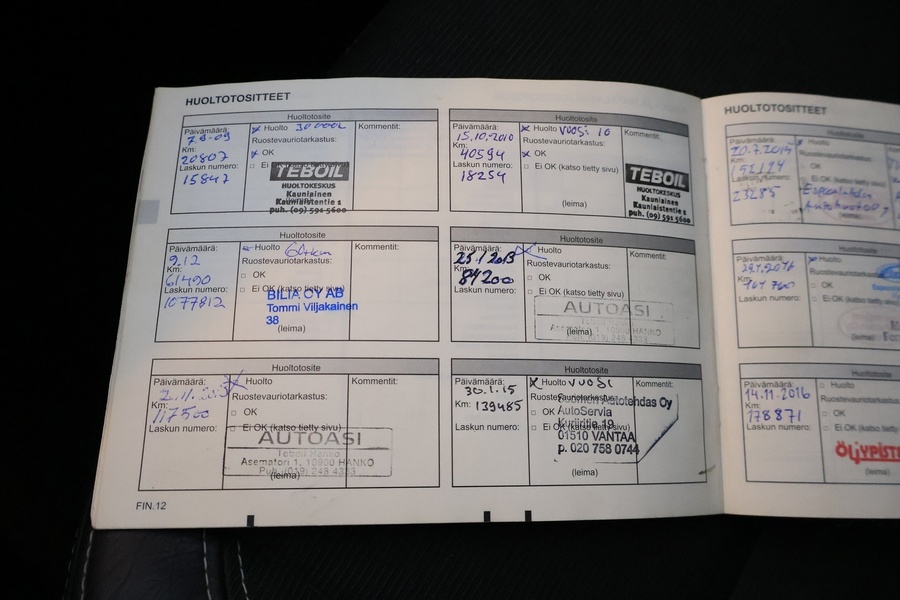 HUOLTOTOSITTEET
Huoltotosite
Päivämäärä:
7.9-09
Km:
20807
Laskun numero:
15847
Huolto 30 000
Ruostevauriotarkastus:
OK
Ei
Kommentit:
TEBOIL
HUOLTOKESKUS
Kauniainen
Kauniaistentie 1
puh. (09) 591 5600
Huoltotosite
Päivämäärä:
15.10.2010
Km:
40594
Laskun numero:
18254
Huolto VUOSI 10
Ruostevauriotarkastus:
OK
Ei OK (katso tietty sivu)
(leima)
Kommentit:
TEBOIL
HUOLTOKESKUS
Kauniainen
Kauniaistentie 1
puh. (09) 591 5600
Huoltotosite
Päivämäärä:
9.12
Km:
61490
Laskun numero:
1077812
Huolto 60tkm
Ruostevauriotarkastus:
OK
Ei OK (katso tietty sivu)
BILIA OY AB
Tommi Viljakainen
38
(leima)
Kommentit:
Huoltotosite
Päivämäärä:
25.1 2013
Km:
84200
Laskun numero:
Huolto
Ruostevauriotarkastus:
OK
Ei OK (katso tietty sivu)
AUTOASI
Asematori 1, 10900 HANKO
(leima)
Kommentit:
Huoltotosite
Päivämäärä:
Km:
117500
Laskun numero:
Huolto
Ruostevauriotarkastus:
OK
Ei OK (katso tietty sivu)
AUTOASI
Teboil Hanko
Asematori 1, 10900 HANKO
Puh. (019) 248 4333
(leima)
Kommentit:
Huoltotosite
Päivämäärä:
30.1.15
Km: 139485
Laskun numero:
Huolto VUOSI
OK
Ei OK (katso tietty sivu)
Suomen Autotehdas Oy
AutoServia
Kuriiritie 19
01510 VANTAA
p. 020 758 0744
(leima)
Kommentit:
FIN.12
HUOLTOTOSITTEET
Huoltotosite
Päivämäärä:
Km:
Laskun numero:
23285
Huolto
Ruostevauriotarkastus:
OK
Ei OK (katso tietty sivu)
Huoltotosite
Päivämäärä:
Km:
Laskun numero:
Huolto
OK
Ei OK (katso tietty sivu)
(leima)
Huoltotosite
Päivämäärä:
14.11.2016
Km:
178871
Laskun numero:
Huolto
OK
Ei OK
(leima)